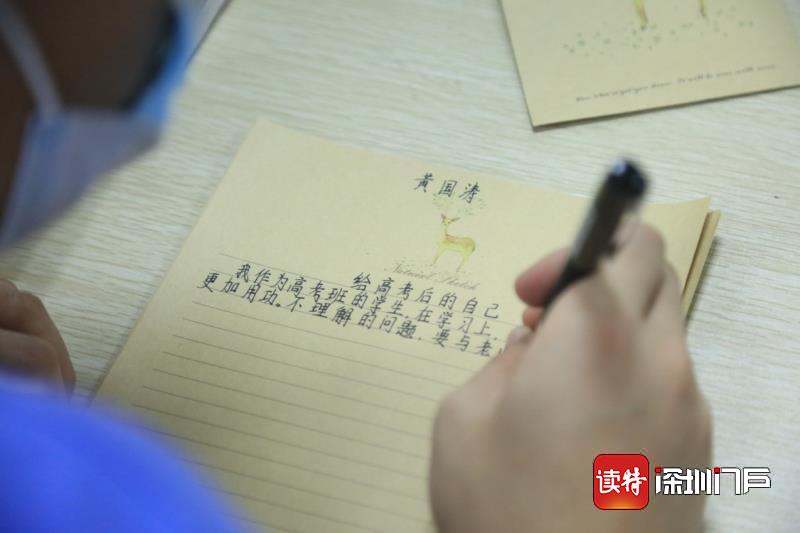 黄国涛
Natural Sketch
给高考后的自己
我作为高考班的学生.在学习上.
更加用功.不理解的问题.要与老
读特
深圳门户